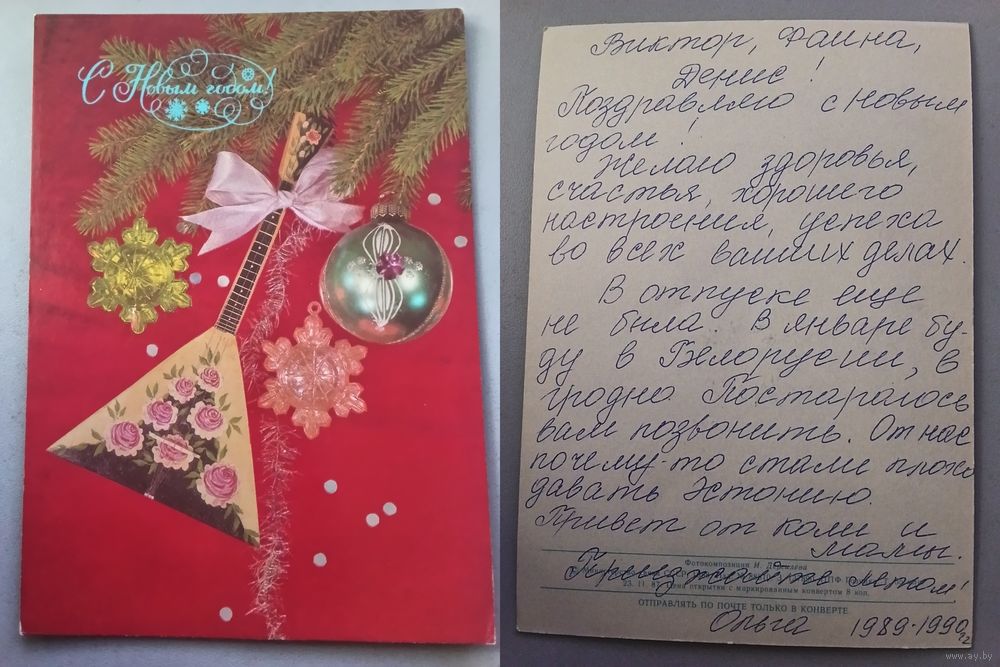 С Новым годом!
Виктор, Фаина,
Денис!
Поздравляю с Новым
годом!
Желаю здоровья,
счастья, хорошего
настроения, успеха
во всех ваших делах.
В отпуске еще
не была. В январе бу-
ду в Белорусии, в
гродно Постараюсь
вам позвонить. От нас
почему-то стали плохо
давать Эстонию.
Привет от коли и
мамы.
Фотокомпозиция И.
Приезжайте летом!
23. 11. открытки с маркированным конвертом 8 коп.
ОТПРАВЛЯТЬ ПО ПОЧТЕ ТОЛЬКО В КОНВЕРТЕ
Ольга 1989-1990
www.ay.by